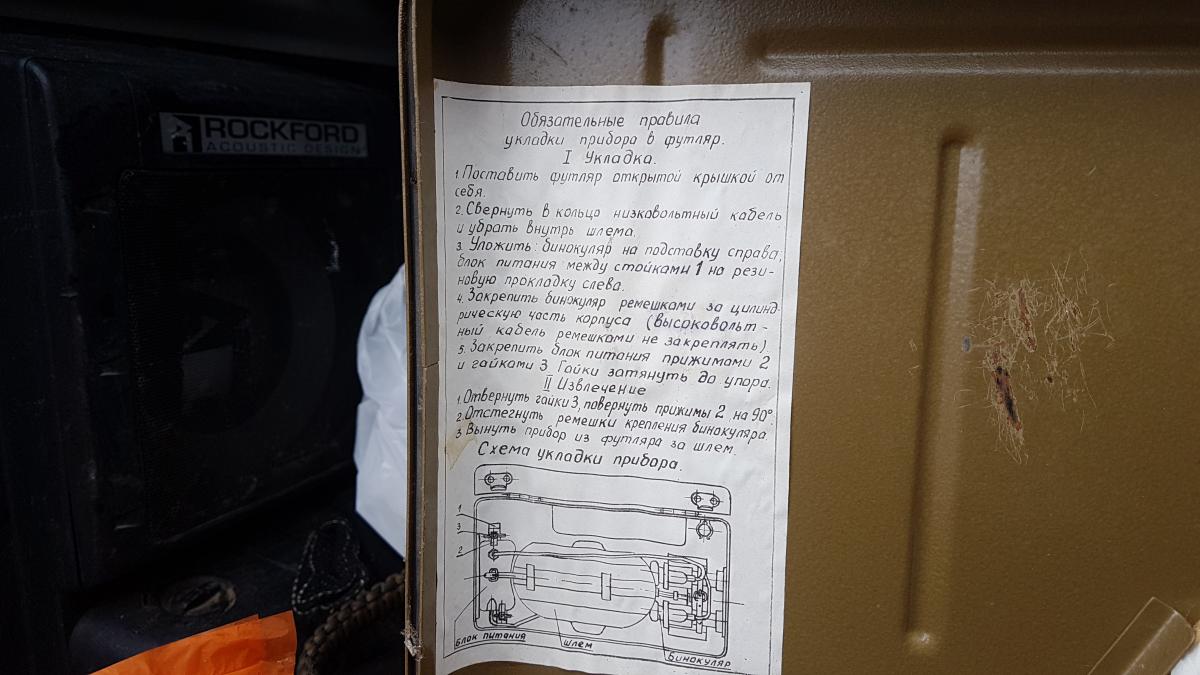 ROCKFORD
ACOUSTIC DESIGN
Обязательные правила
укладки прибора в футляр.
I Укладка.
1. Поставить футляр открытой крышкой от
себя.
2. Свернуть в кольцо низковольтный кабель
и убрать внутрь шлема.
3. Уложить: бинокуляр на подставку справа;
блок питания между стойками 1 на рези-
новую прокладку слева.
4. Закрепить бинокуляр ремешками за цилинд-
рическую часть корпуса (высоковольт-
ный кабель ремешками не закреплять)
5. Закрепить блок питания прижимами 2
и гайками 3. Гайки затянуть до упора.
II Извлечение
1. Отвернуть гайки 3, повернуть прижимы 2 на 90°.
2. Отстегнуть ремешки крепления бинокуляра.
3. Вынуть прибор из футляра за шлем.
Схема укладки прибора.
1
3
2
блок питания шлем бинокуляр